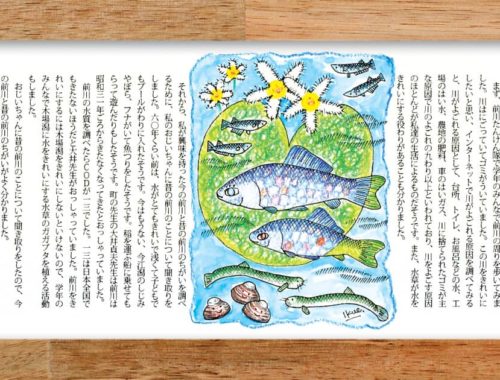 まず、前川たんけん隊で学年みんなで前川の周りを歩いてみま
した。川はにごっていてゴミがういていました。この川をきれいに
したいと思い、インターネットで川がよごれる原因を調べてみる
と、川がよごれる原因として、台所、トイレ、お風呂などの水、工
場のはい水、農地の肥料、車のはいガス、川に捨てられたゴミが主
な原因で川のよごれの九わり以上といわれており、川をよごす原因
のほとんどが私達の生活によるものだそうです。また、水草が水を
きれいにする役わりがあることも分かりました。
それから、私が興味を持った今の前川と昔の前川のちがいを調べ
るために、私のおじいちゃんに昔の前川のことについて聞き取りを
しました。六〇年くらい前は、水がとてもきれいで浅くて子どもで
もプールがわりに入れたそうです。今はもういない、今江潟のしじみ
やぼら、フナがいて魚つりをしたそうです。稲を運ぶ船に乗せても
らって遊んだりもしたそうです。町の先生の大井貞夫先生は前川は
昭和三一年ごろからきたなくなってきたとおっしゃっていました。
前川の水質を調べたらCODが一三でした。一三は日本全国で
もきたないほうだと大井先生がおっしゃっていました。前川をき
れいにするには木場潟をきれいにしないといけないので、学年の
みんなで木場潟に水をきれいにする水草のガガブタを植える活動
もしました。
おじいちゃんに昔の前川のことについて聞き取りをしたので、今
の前川と昔の前川のちがいがよく分かりました。